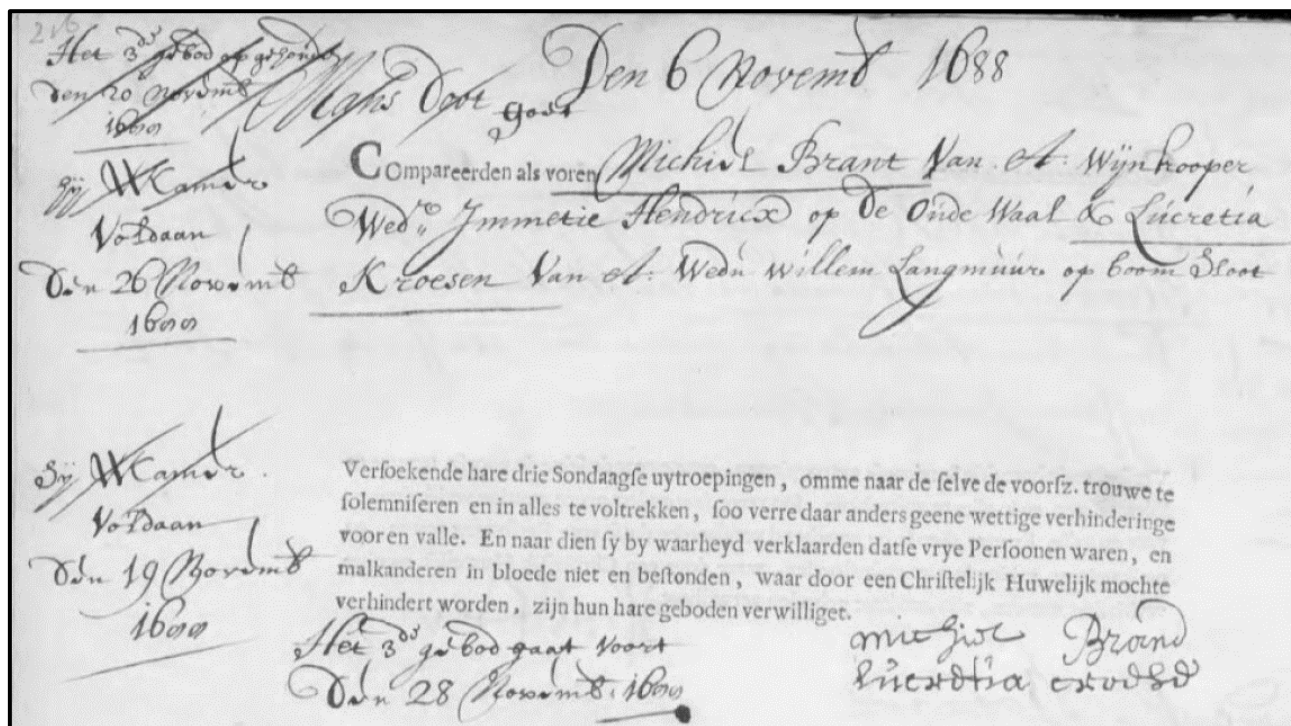 216
Het 3de gebod op gehouden
den 20 Novemb
1688
Den 6 Novemb 1688
goet
Compareerden als voren Michiel Brant Van A: Wijnkooper
Wedr Immetie Hendricx op de Oude Waal & Lucretia
Kroesen Van A: Wedu willem Langmuur op boom Sloot
Wkamer
Voldaan
Den 26 Novemb
1688
Wkamer
Voldaan
Den 19 Novemb
1688
Versoekende hare drie Sondaagse uytroepingen, omme naar de selve de voorsz. trouwe te
solemniseren en in alles te voltrekken, soo verre daar anders geene wettige verhinderinge
voor en valle. En naar dien sy by waarheyd verklaarden datse vrye Persoonen waren, en
malkanderen in bloede niet en bestonden, waar door een Christelijk Huwelijk mochte
verhindert worden, zijn hun hare geboden verwilliget.
Het 3de gebod gaat Voort
Den 28 Novemb. 1688
michiel Brand
lucretia croese